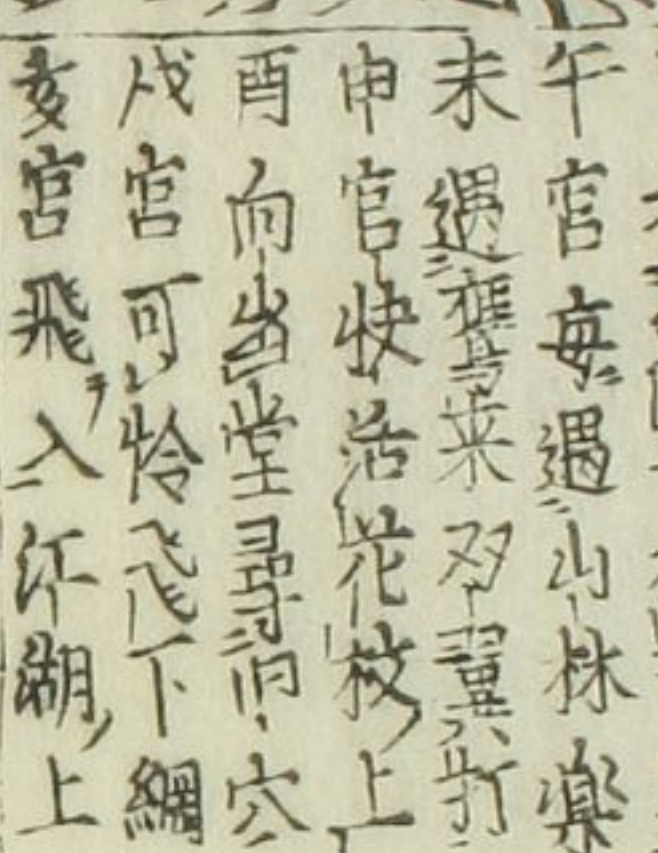 午宮每遇山林楽
未遇鸎来双翼打
申官快活花枝上
酉向出堂尋旧穴
戌宮可怜飛下網
亥宮飛入江湖上